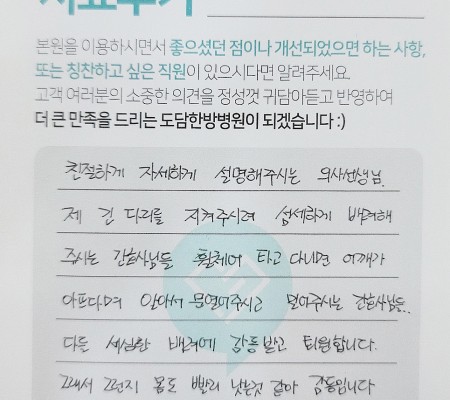 치료후기
본원을 이용하시면서 좋으셨던 점이나 개선되었으면 하는 사항,
또는 칭찬하고 싶은 직원이 있으시다면 알려주세요.
고객 여러분의 소중한 의견을 정성껏 귀담아듣고 반영하여
더 큰 만족을 드리는 도담한방병원이 되겠습니다 :)
친절하게 자세하게 설명해주시는 의사선생님.
제 긴 다리를 지켜주시려 섬세하게 배려해
주시는 간호사님들 휠체어 타고 다니면 어깨가
아프다며 앉아서 문열어주시고 밀어주시는 간호사님들..
다들 세심한 배려에 감동받고 퇴원합니다.
그래서 그런지 몸도 빨리 낫는것 같아 감동입니다